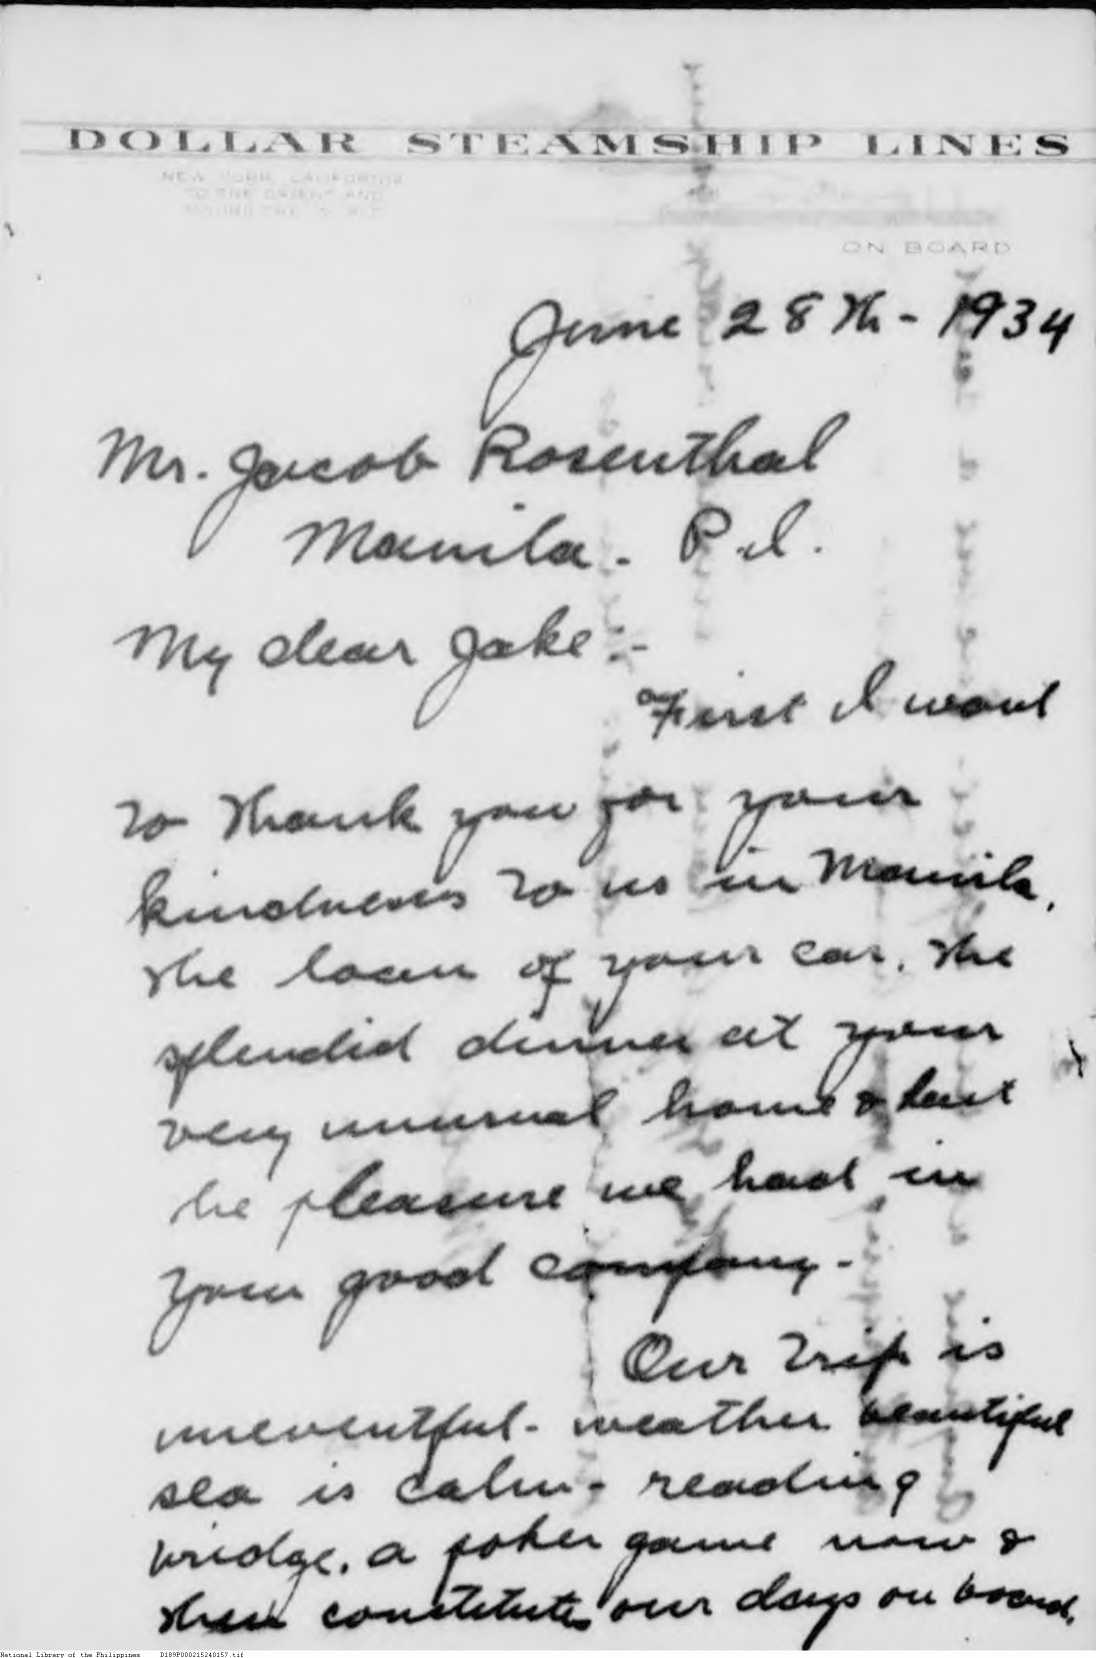 DOLLAR STEAMSHIP LINES
NEW YORK, CALIFORNIA
TO THE ORIENT AND
ROUND THE WORLD
ON BOARD
June 28th - 1934
Mr. Jacob Rosenthal
Manila - P.I.
My dear Jake:-
First I want
to thank you for your
kindness to us in Manila,
the loan of your car, the
splendid dinner at your
very unusual home & last
he pleasure we had in
your good company -
Our trip is
uneventful - weather beautiful
sea is calm - reading
bridge, a poker game now &
then constitutes our days on board.
National Library of the Philippines D189P000215240157.tif